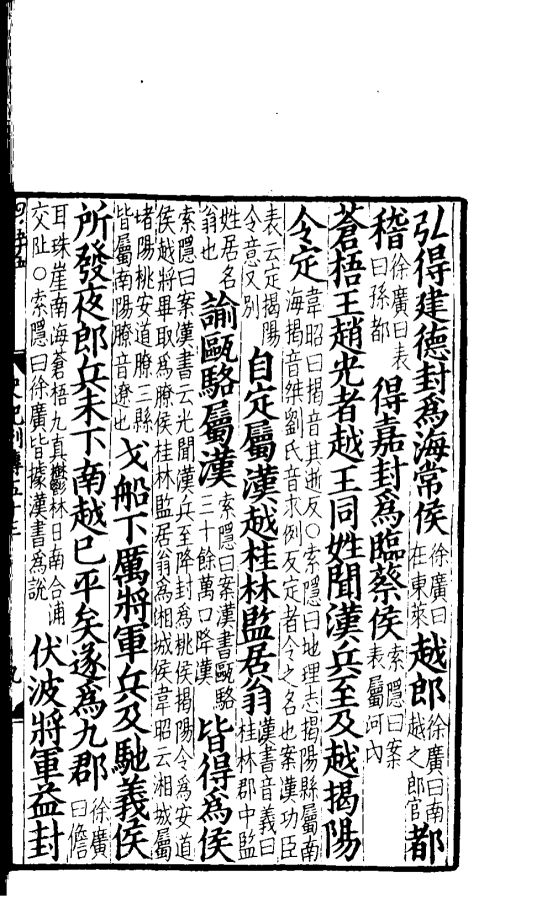 弘得建德封爲海常侯徐廣曰在東萊越郎徐廣曰南越之郎官都
稽徐廣曰表曰孫都得嘉封爲臨蔡侯索隱曰案表屬河内
蒼梧王趙光者越王同姓聞漢兵至及越揭陽
令定韋昭曰揭音其逝反○索隱曰地理志揭陽縣屬南海揭音桀劉氏音求例反定者令之名也案漢功臣
表云定揭陽令意又別自定屬漢越桂林監居翁漢書音義曰桂林郡中監
姓居名翁也諭甌駱屬漢索隱曰案漢書甌駱三十餘萬口降漢皆得爲侯
索隱曰案漢書云光聞漢兵至降封爲桃侯揭陽令爲安道侯越將畢取爲膫侯桂林監居翁爲湘城侯韋昭云湘城屬
堵陽桃安道膫三縣皆屬南陽膫音遼也戈船下厲將軍兵及馳義侯
所發夜郎兵未下南越已平矣遂爲九郡徐廣曰儋
耳珠崖南海蒼梧九真鬱林日南合浦交阯○索隱曰徐廣皆據漢書爲說伏波將軍益封
史記列傳五十三